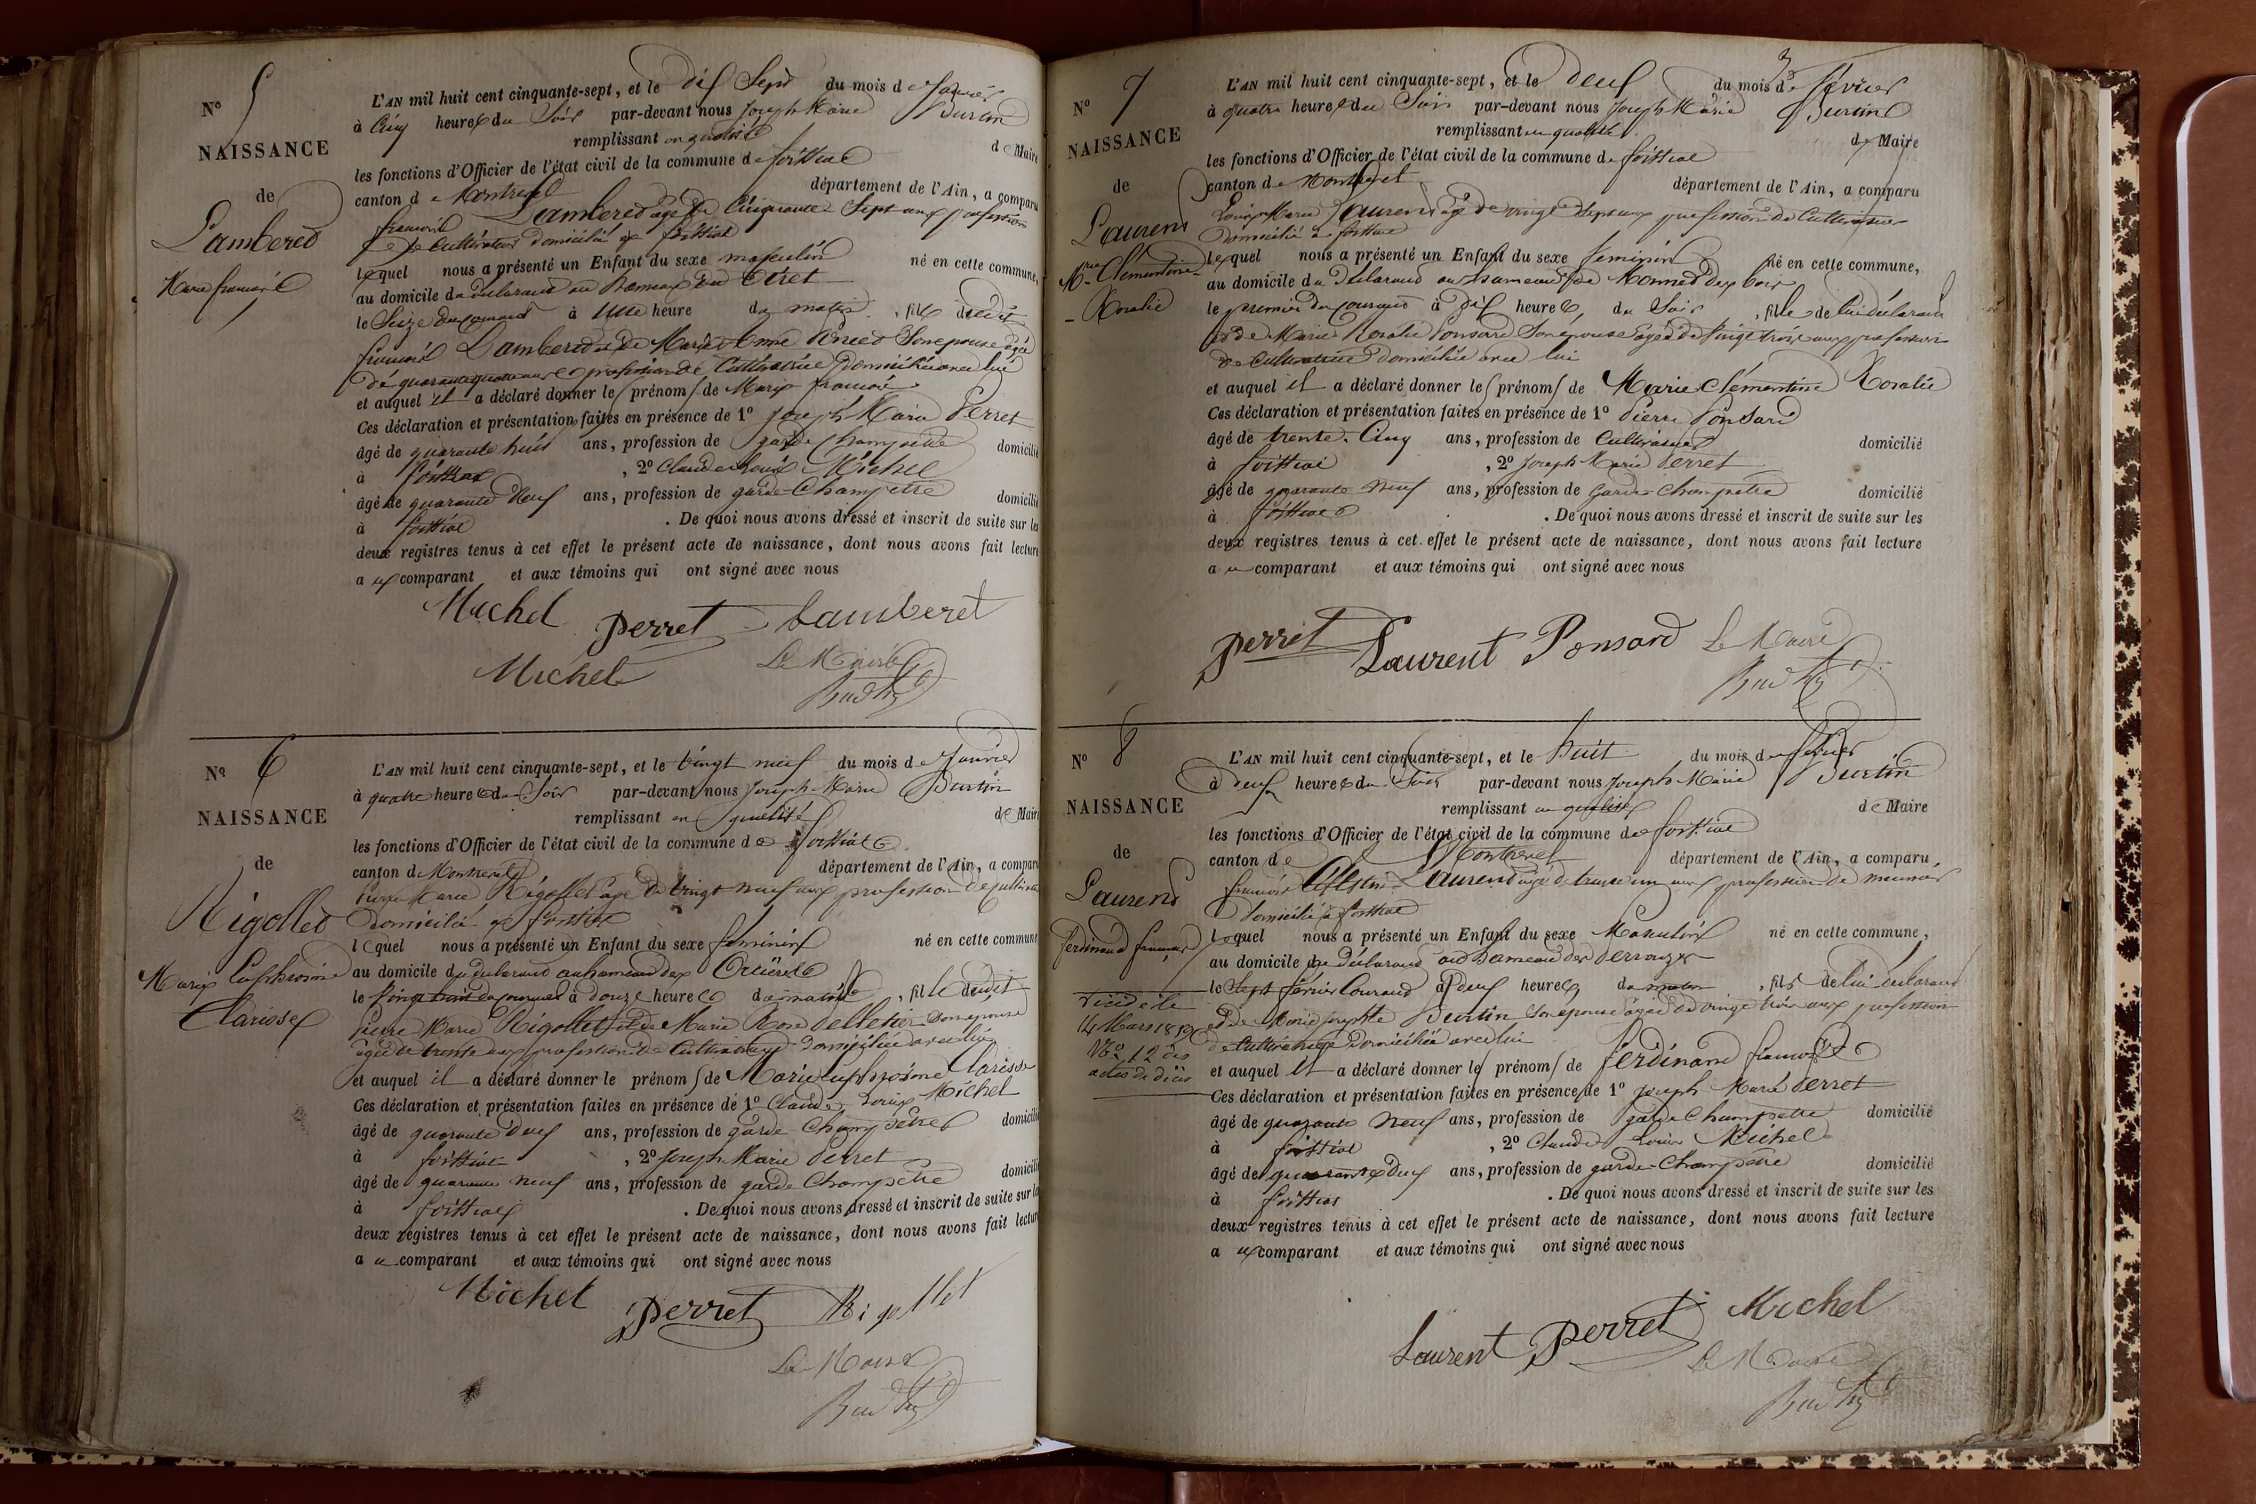 N° 5
NAISSANCE
de
Lamberet
Marie françois
L'AN mil huit cent cinquante-sept, et le dix Sept du mois de Janvier
à Cinq heures du Soir par-devant nous Joseph Marie Burtin
remplissant en qualité de Maire
les fonctions d'Officier de l'état civil de la commune de foissiat
canton de Montrevel département de l'Ain, a comparu
françois Lamberet âgé de Cinquante Sept ans profession
de Cultivateur domicilié à foissiat
lequel nous a présenté un Enfant du sexe masculin né en cette commune,
au domicile du déclarant au hameau du
le Seize du courant à Une heure du matin, fils dudit
françois Lamberet et de Marie Anne Son épouse âgée
de quarante quatre ans profession de Cultivatrice domiciliée avec lui
et auquel il a déclaré donner les prénoms de Marie françois
Ces déclaration et présentation faites en présence de 1° Joseph Marie Perret
âgé de quarante huit ans, profession de garde Champetre domicilié
à foissiat, 2° Claude Louis Michel
âgé de quarante deux ans, profession de garde Champetre domicilié
à foissiat. De quoi nous avons dressé et inscrit de suite sur les
deux registres tenus à cet effet le présent acte de naissance, dont nous avons fait lecture
au comparant et aux témoins qui ont signé avec nous
Michel Perret Lamberet
Michel Le Maire
Burtin
N° 6
NAISSANCE
de
Rigollet
Marie Euphrosine
Clarisse
L'AN mil huit cent cinquante-sept, et le vingt neuf du mois de Janvier
à quatre heures du Soir par-devant nous Joseph Marie Burtin
remplissant en qualité de Maire
les fonctions d'Officier de l'état civil de la commune de foissiat
canton de Montrevel département de l'Ain, a comparu
Pierre Marie Rigollet âgé de vingt neuf ans profession de cultivateur
domicilié à foissiat
lequel nous a présenté un Enfant du sexe féminin né en cette commune
au domicile du déclarant au hameau des
le vingt huit du courant à douze heures du matin, fille dudit
Pierre Marie Rigollet et de Marie Rose Pelletier Son épouse
âgée de trente ans profession de Cultivatrice domiciliée avec lui
et auquel il a déclaré donner le prénoms de Marie Euphrosine Clarisse
Ces déclaration et présentation faites en présence de 1° Claude Louis Michel
âgé de quarante deux ans, profession de garde Champêtre domicilié
à foissiat, 2° Joseph Marie Perret
âgé de quarante neuf ans, profession de garde Champetre domicilié
à foissiat. De quoi nous avons dressé et inscrit de suite sur les
deux registres tenus à cet effet le présent acte de naissance, dont nous avons fait lecture
au comparant et aux témoins qui ont signé avec nous
Michel Perret Rigollet
Le Maire
Burtin
3
N° 7
NAISSANCE
de
Laurent
Mie Clémentine
Rosalie
L'AN mil huit cent cinquante-sept, et le deux du mois de février
à quatre heures du Soir par-devant nous Joseph Marie Burtin
remplissant en qualité de Maire
les fonctions d'Officier de l'état civil de la commune de foissiat
canton de Montrevel département de l'Ain, a comparu
Louis Marie Laurent âgé de vingt Sept ans profession de Cultivateur
domicilié à foissiat
lequel nous a présenté un Enfant du sexe féminin né en cette commune,
au domicile du déclarant au hameau de
le premier du courant à dix heures du Soir, fille de lui déclarant
et de Marie Rosalie Ponsard Son épouse âgée de vingt trois ans profession
de Cultivatrice domiciliée avec lui
et auquel il a déclaré donner les prénoms de Marie Clémentine Rosalie
Ces déclaration et présentation faites en présence de 1° Pierre Ponsard
âgé de trente Cinq ans, profession de Cultivateur domicilié
à foissiat, 2° Joseph Marie Perret
âgé de quarante neuf ans, profession de garde Champetre domicilié
à foissiat. De quoi nous avons dressé et inscrit de suite sur les
deux registres tenus à cet effet le présent acte de naissance, dont nous avons fait lecture
au comparant et aux témoins qui ont signé avec nous
Perret Laurent Ponsard Le Maire
Burtin
N° 8
NAISSANCE
de
Laurent
ferdinand françois
Décédé le
14 Mars 1859
N° 12 des
actes de décès
L'AN mil huit cent cinquante-sept, et le huit du mois de février
à deux heures du Soir par-devant nous Joseph Marie Burtin
remplissant en qualité de Maire
les fonctions d'Officier de l'état civil de la commune de foissiat
canton de Montrevel département de l'Ain, a comparu
françois Célestin Laurent âgé de trente un ans profession de meunier
domicilié à foissiat
lequel nous a présenté un Enfant du sexe Masculin né en cette commune,
au domicile du déclarant au hameau des
le Sept février Courant à deux heures du matin, fils de lui déclarant
et de Marie Josephte Burtin Son épouse âgée de vingt trois ans profession
de Cultivatrice domiciliée avec lui
et auquel il a déclaré donner les prénoms de ferdinand françois
Ces déclaration et présentation faites en présence de 1° Joseph Marie Perret
âgé de quarante neuf ans, profession de garde Champetre domicilié
à foissiat, 2° Claude Louis Michel
âgé de quarante deux ans, profession de garde Champetre domicilié
à foissiat. De quoi nous avons dressé et inscrit de suite sur les
deux registres tenus à cet effet le présent acte de naissance, dont nous avons fait lecture
au comparant et aux témoins qui ont signé avec nous
Laurent Perret Michel
Le Maire
Burtin